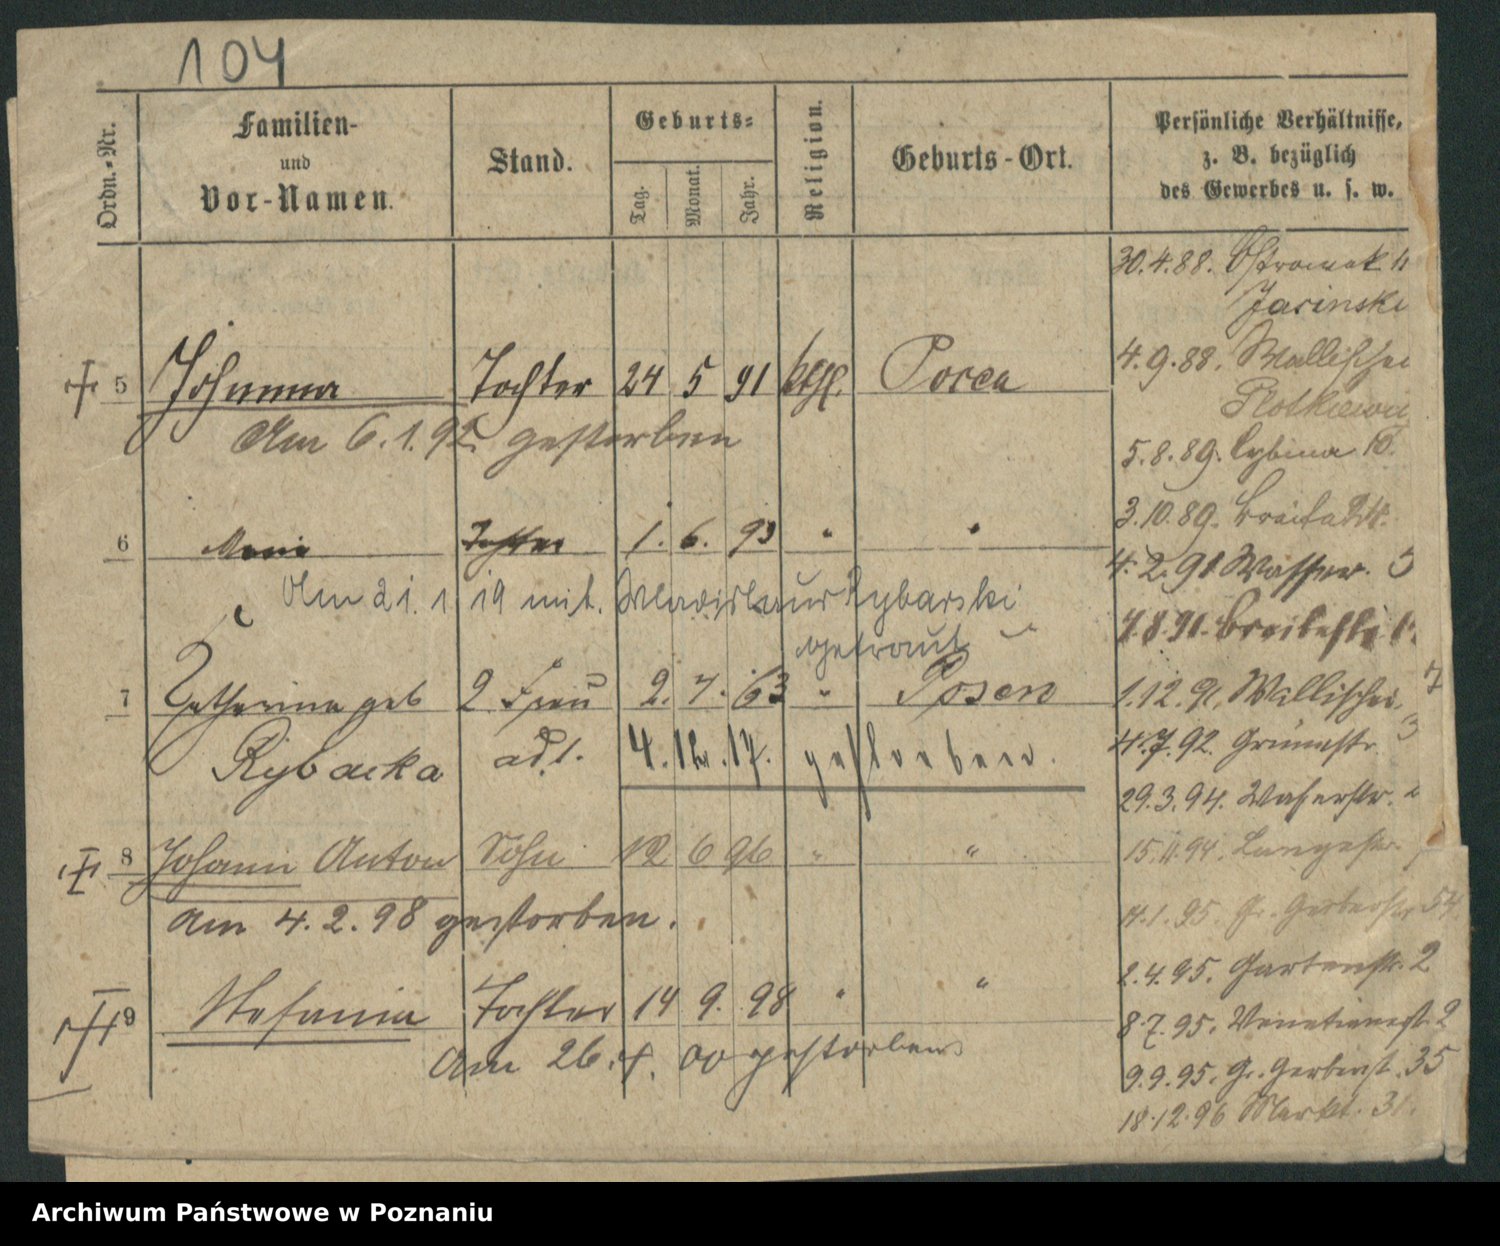 104
Ordn.-Nr.
Familien-
und
Vor-Namen.
Stand.
Geburts-
Tag.
Monat.
Jahr.
Religion.
Geburts-Ort.
Persönliche Verhältnisse,
z. B. bezüglich
des Gewerbes u. s. w.
5 Johanna Tochter 24 5 91 kthl.
Am 6.1.92 gestorben
6 Maria Tochter 1. 6. 93 " "
Am 21. 1 19 mit. Rybarski
getraut
7 Catharina geb 2 Frau 2. 7. 63 " Posen
Rybacka ad 1. 4. 12. 17. gestorben.
8 Johann Anton Sohn 12 6 96 " "
am 4. 2. 98 gestorben.
9 Stefania Tochter 14 9. 98 " "
Am 26. 00 gestorben
30.4.88. Ostrowek
Jasinski
4.9.88. Wallischei
Plotkiewicz
5.8.89. Cybina
3.10.89. Breitestr.
4.2.91 Wasser.
1.12.91. Wallischei. 7
4.7.92. Grünestr. 3
29.3.94. Wasserstr.
15.11.94. Langestr.
4.1.95. Gr. Gerberstr 54
2.4.95. Gartenstr. 2
8.7.95. Venetianerst. 2
9.9.95. Gr. Gerberst. 35
18.12.96 Markt. 31.
Archiwum Państwowe w Poznaniu